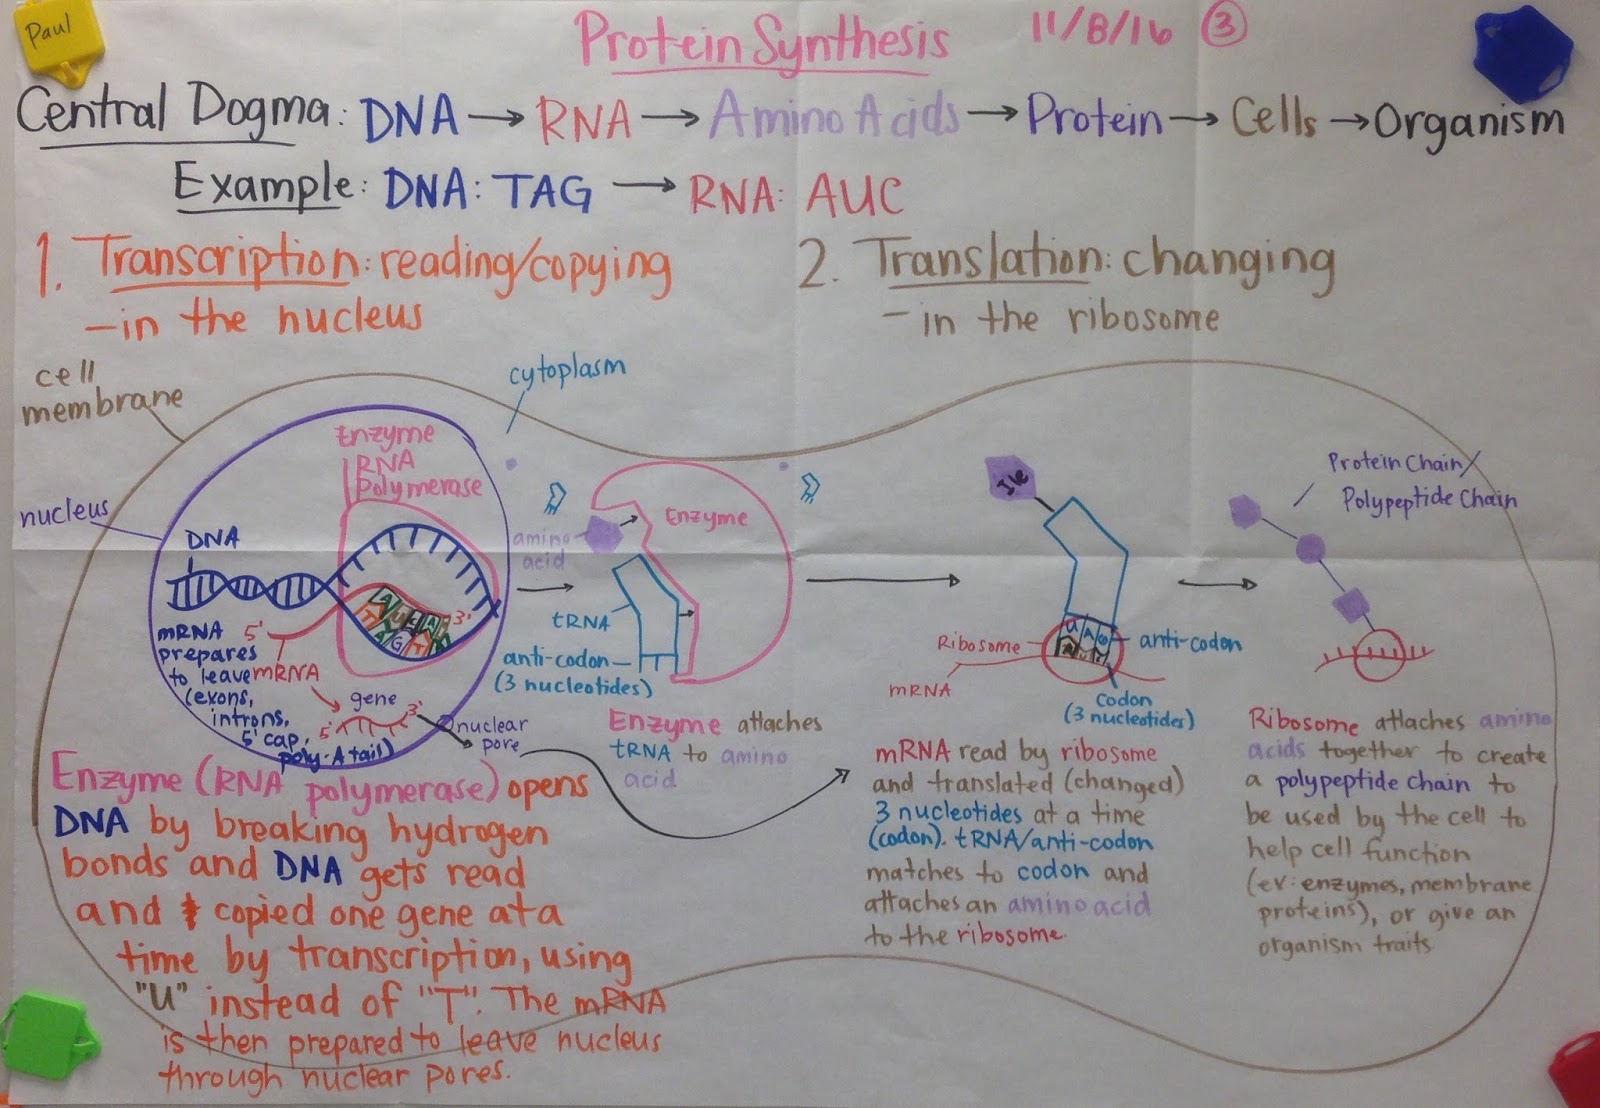 Paul
Protein Synthesis 11/8/16 3
Central Dogma: DNA → RNA → Amino Acids → Protein → Cells → Organism
Example: DNA: TAG → RNA: AUC
1. Transcription: reading/copying
- in the nucleus
2. Translation: changing
- in the ribosome
cell
membrane
cytoplasm
nucleus
Enzyme
RNA
polymerase
DNA
mRNA
prepares
to leave
(exons,
introns,
5' cap,
poly-A tail)
5'
3'
mRNA
gene
5'
3'
nuclear
pore
Enzyme (RNA polymerase) opens
DNA by breaking hydrogen
bonds and DNA gets read
and copied one gene at a
time by transcription, using
"U" instead of "T". The mRNA
is then prepared to leave nucleus
through nuclear pores.
amino
acid
Enzyme
tRNA
anti-codon
(3 nucleotides)
Enzyme attaches
tRNA to amino
acid
Ile
UAG
Ribosome
anti-codon
mRNA
codon
(3 nucleotides)
mRNA read by ribosome
and translated (changed)
3 nucleotides at a time
(codon). tRNA/anti-codon
matches to codon and
attaches an amino acid
to the ribosome.
Protein Chain/
Polypeptide Chain
Ribosome attaches amino
acids together to create
a polypeptide chain to
be used by the cell to
help cell function
(ex: enzymes, membrane
proteins), or give an
organism traits.